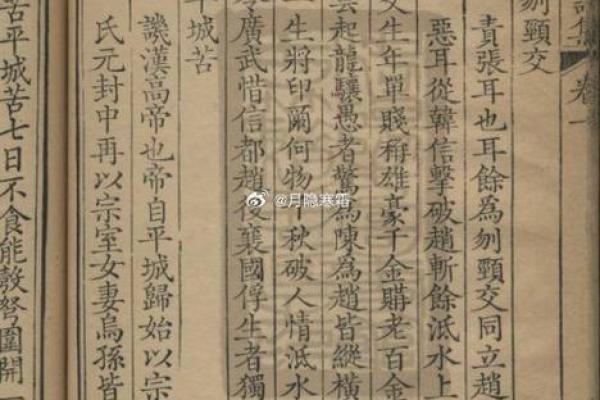 集 卷一
刎頸交
責張耳也耳餘為刎頸交同立趙
惡耳從韓信擊破趙斬餘泜水上
父生年單賤稱雄豪千金購老百金
雲起龍驤愚者驚為陳為趙皆縱橫
一生將印爾何物千秋破人情泜水
廣武惜信都趙後襄國俘生者獨
平城苦
譏漢高帝也帝自平城歸始以宗
氏元封中再以宗室女妻烏孫皆
苦平城苦七日不食能彀弩圍開
@月隐寒霜